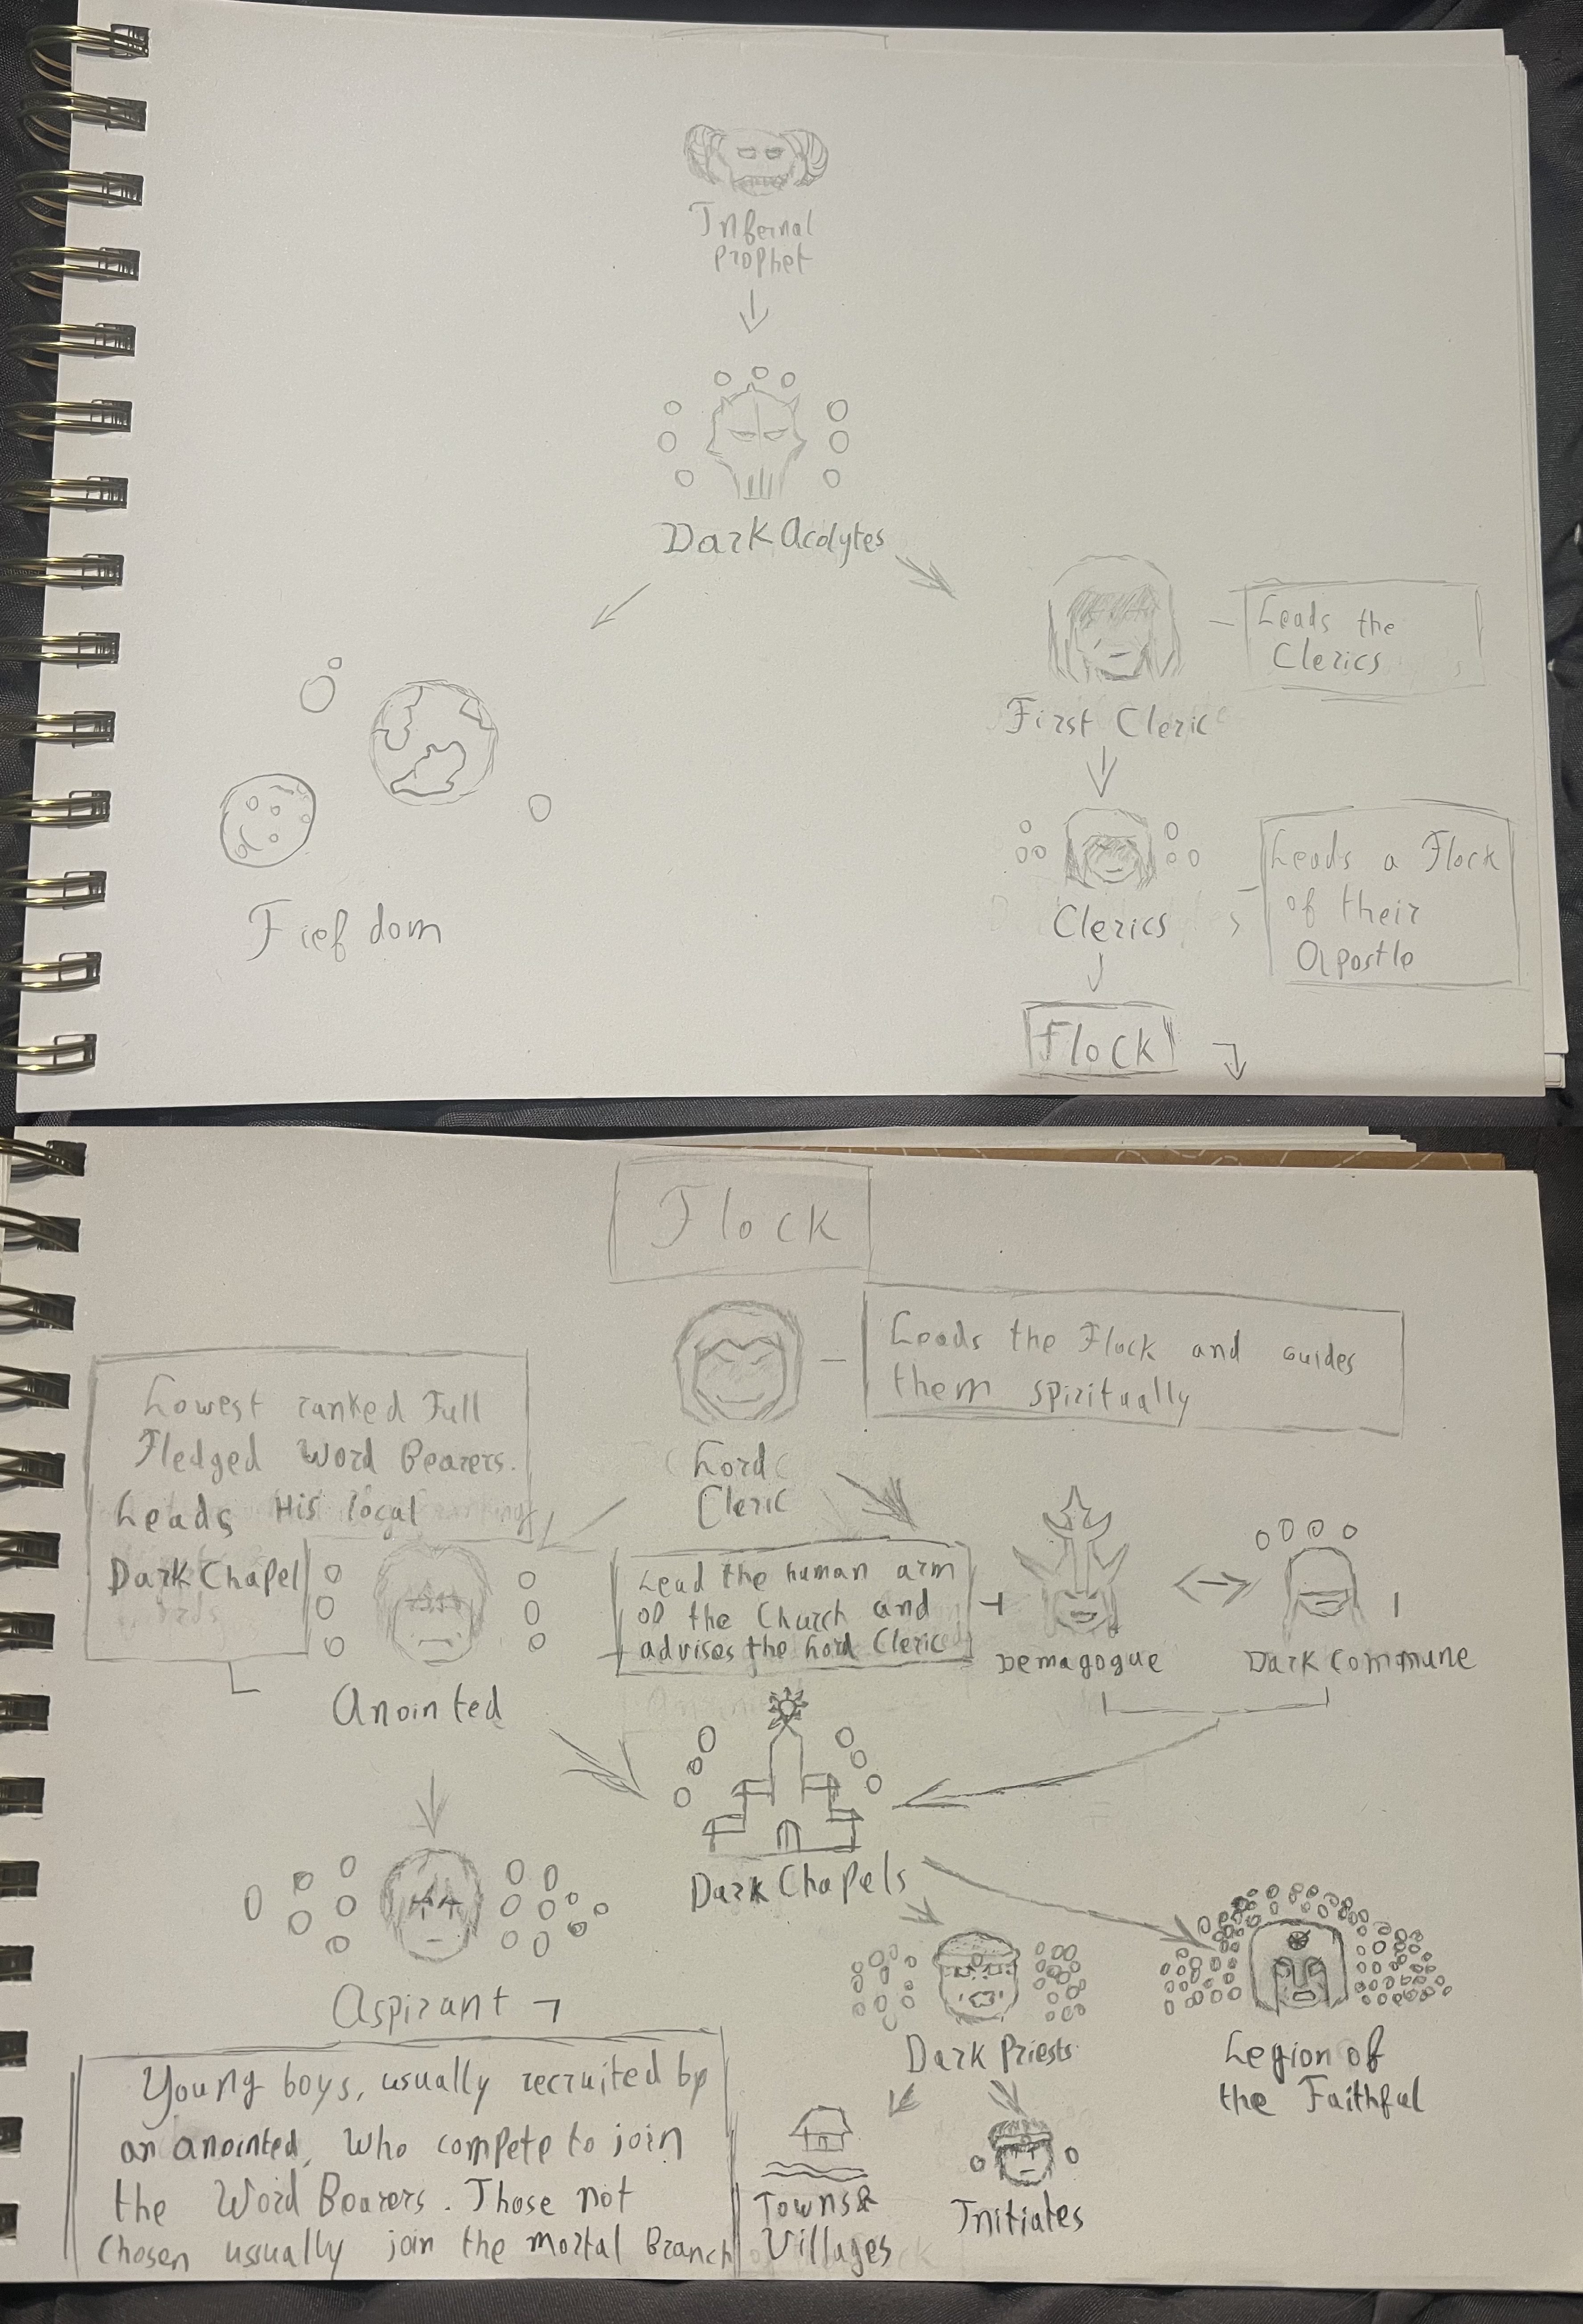 Infernal
Prophet
Dark Acolytes
Leads the
Clerics
First Cleric
Fiefdom
Clerics
Leads a Flock
of their
Apostle
Flock
Flock
Leads the Flock and Guides
them spiritually
Lord
Cleric
Lowest ranked Full
Fledged Word Bearers.
Leads His local
Dark Chapel
Anointed
Lead the human arm
of the Church and
advises the Lord Cleric
Demagogue
Dark Commune
Dark Chapels
Aspirant
Young boys, usually recruited by
an anointed, Who compete to join
the Word Bearers. Those not
Chosen usually join the mortal Branch
Dark Priests
Legion of
the Faithful
Towns &
Villages
Initiates